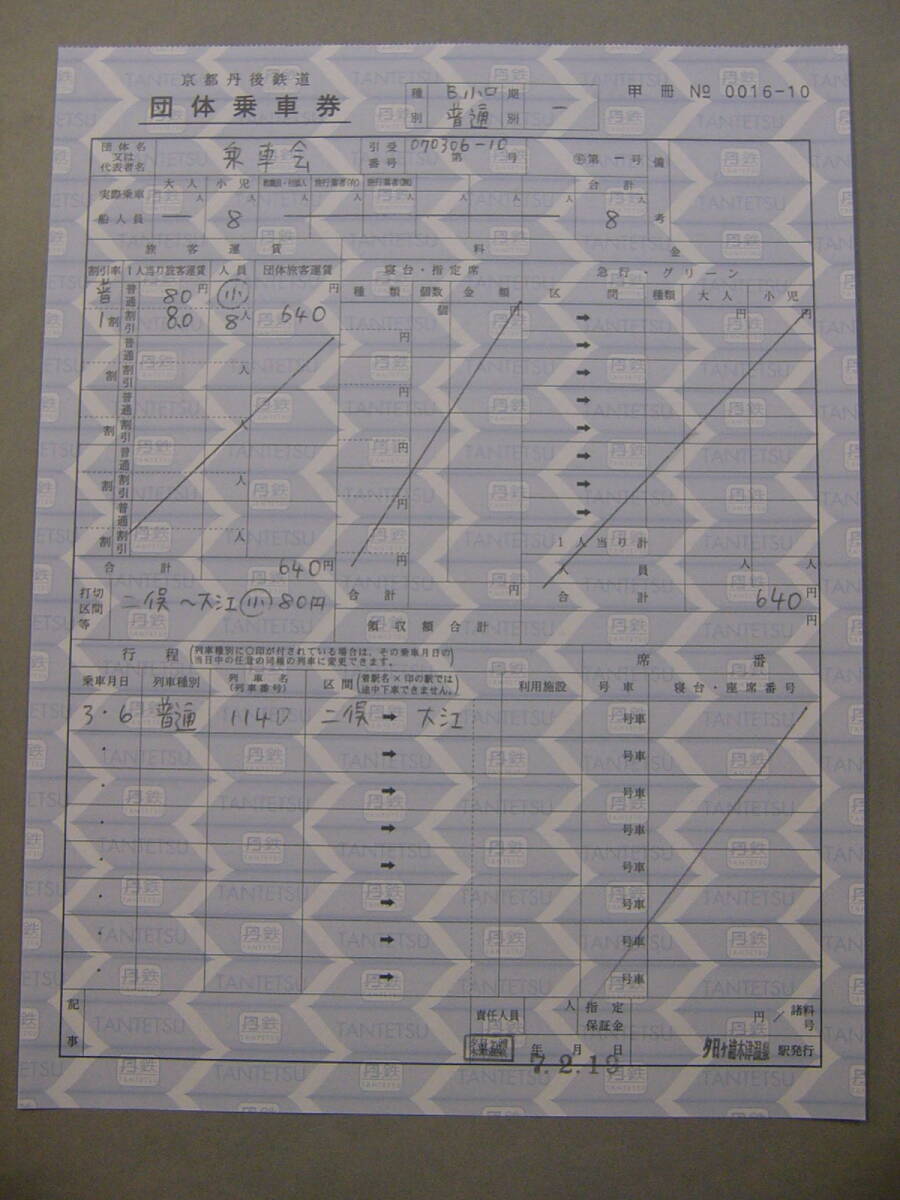 京都丹後鉄道
団体乗車券
種別 B小口 普通 期別 一
甲 冊 № 0016-10
団体名又は代表者名 乗車会 引受番号 070306-10 第 号 第一号 備考
実際乗車船人員 大人 小児 合計
人 人 人 人 人 人 人
一 8 8
旅客運賃 料金
割引率 1人当り旅客運賃 人員 団体旅客運賃 寝台・指定席 急行・グリーン
種類 個数 金額 区間 種類 大人 小児
普 普通 80円 小 円 個 円 ➡ 円 円
1割 割引 80 8人 640 円 ➡
普通 ➡
割 割引 人 円 ➡
普通 ➡
割 割引 人 円 ➡
普通 ➡
割 割引 人 円 ➡
普通 1人当り計
割 割引 人 円 人員 人 人
合計 640円 合計 円 合計 640円
打切区間等 二俣〜大江 小 80円
領収額合計 円
行程 (列車種別に〇印が付されている場合は、その乗車月日の当日中の任意の同種の列車に変更できます。) 席番
乗車月日 列車種別 列車名(列車番号) 区間 (着駅名×印の駅では途中下車できません。) 利用施設 号車 寝台・座席番号
3・6 普通 114D 二俣 ➡ 大江 号車
・ ➡ 号車
・ ➡ 号車
・ ➡ 号車
・ ➡ 号車
・ ➡ 号車
・ ➡ 号車
・ ➡ 号車
記事 責任人員 人 指定保証金 円 / 諸料号
年 月 日 夕日ヶ浦木津温泉 駅発行
7.2.19
丹鉄
TANTETSU